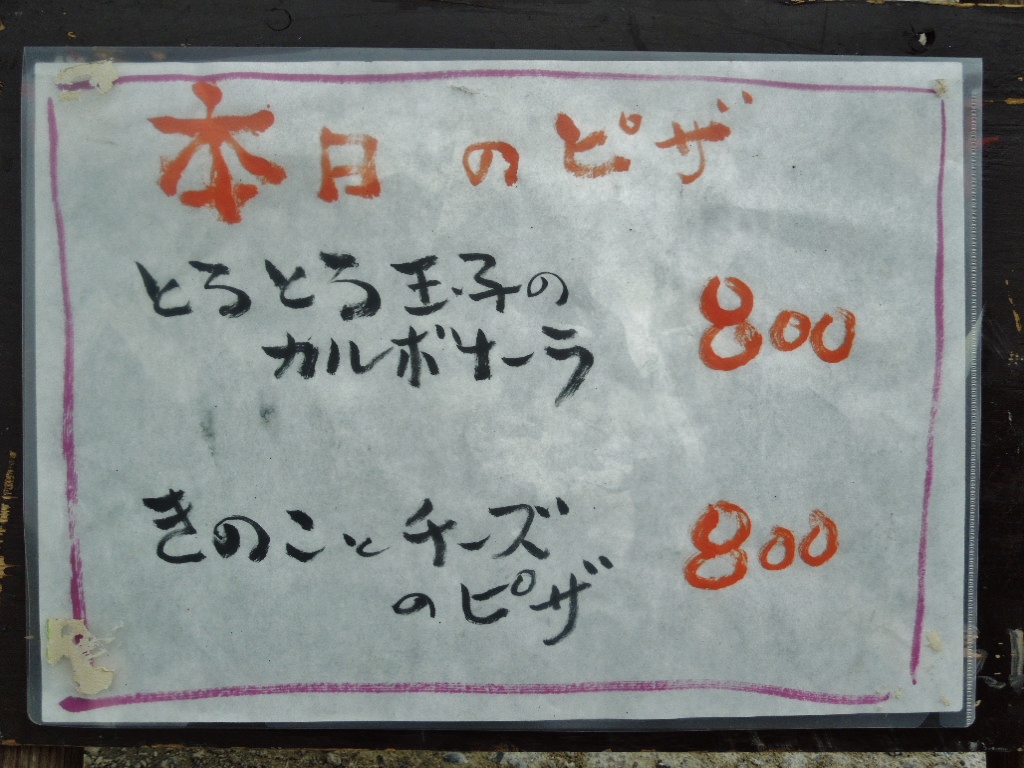 本日のピザ
とろとろ玉子の
カルボナーラ
800
きのことチーズ
のピザ
800